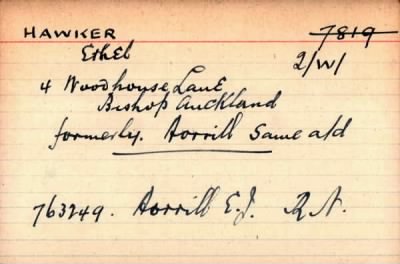 HAWKER 7819
Ethel 2/W/
4 Woodhouse Lane
Bishop Auckland
formerly. Horrill Same add
763249. Horrill E.J. R.N.